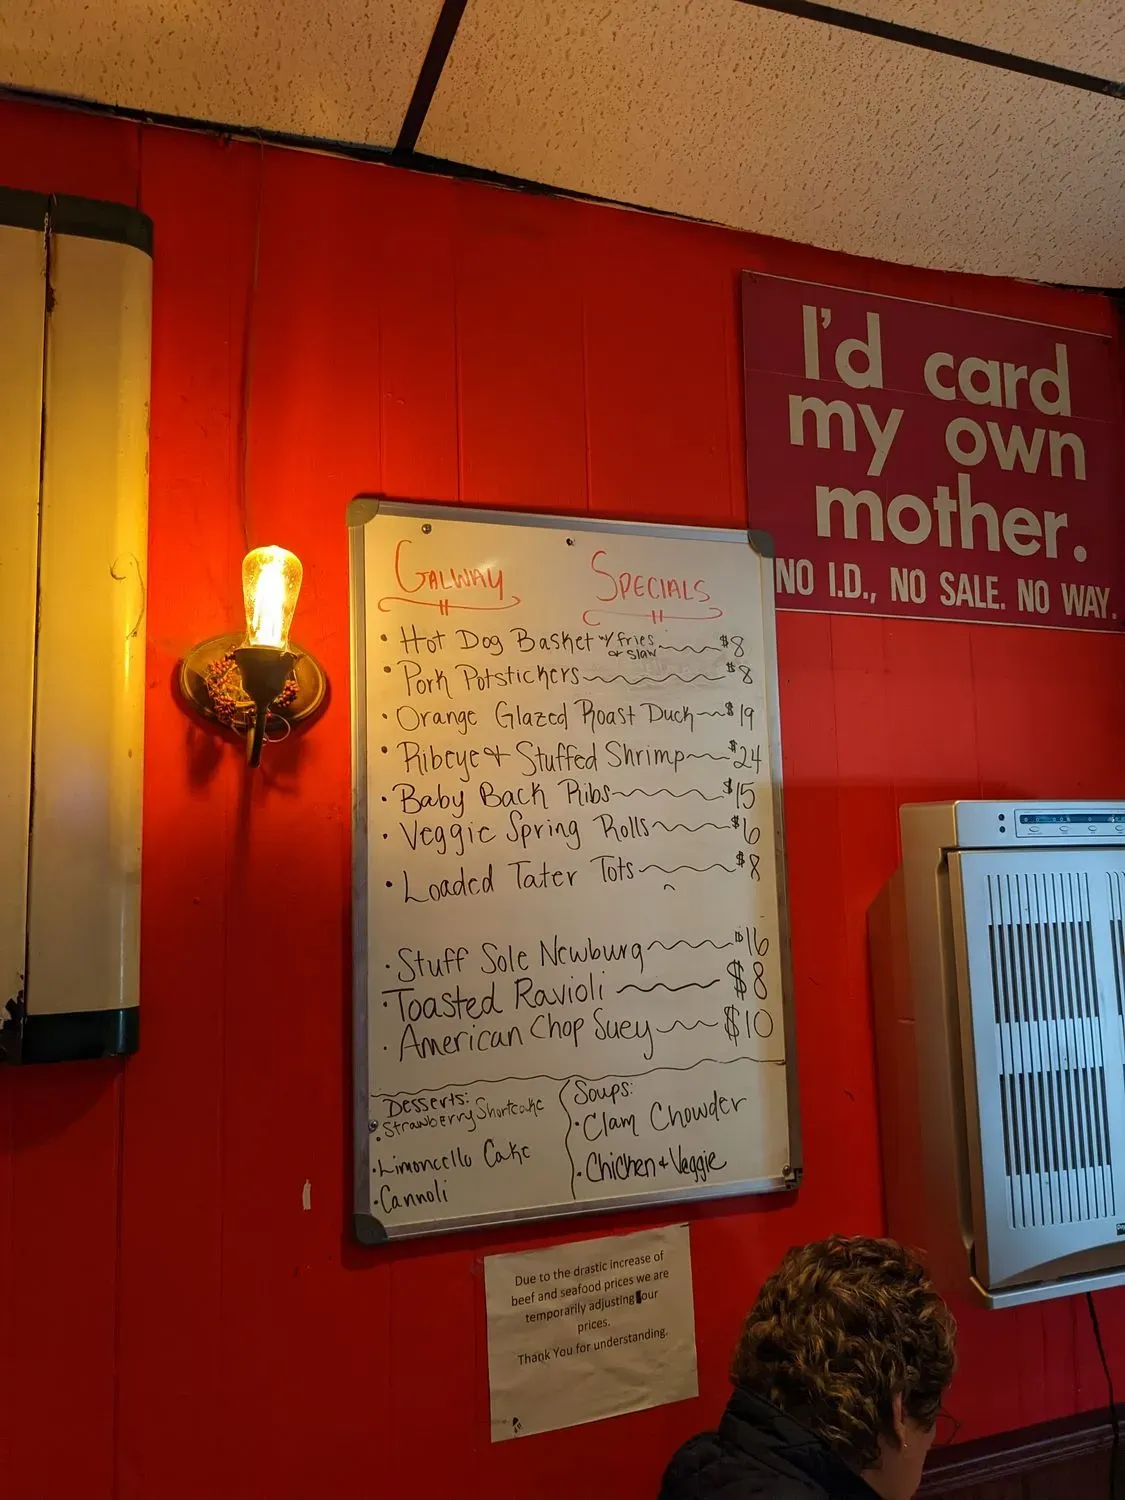 I'd card
my own
mother.
NO I.D., NO SALE. NO WAY.
GALWAY SPECIALS
• Hot Dog Basket w/ fries or slaw $8
• Pork Potstickers $8
• Orange Glazed Roast Duck $19
• Ribeye + Stuffed Shrimp $24
• Baby Back Ribs $15
• Veggie Spring Rolls $6
• Loaded Tater Tots $8
• Stuff Sole Newburg $16
• Toasted Ravioli $8
• American Chop Suey $10
Desserts:
• Strawberry Shortcake
• Limoncello Cake
• Cannoli
Soups:
• Clam Chowder
• Chicken + Veggie
Due to the drastic increase of
beef and seafood prices we are
temporarily adjusting our
prices.
Thank You for understanding.